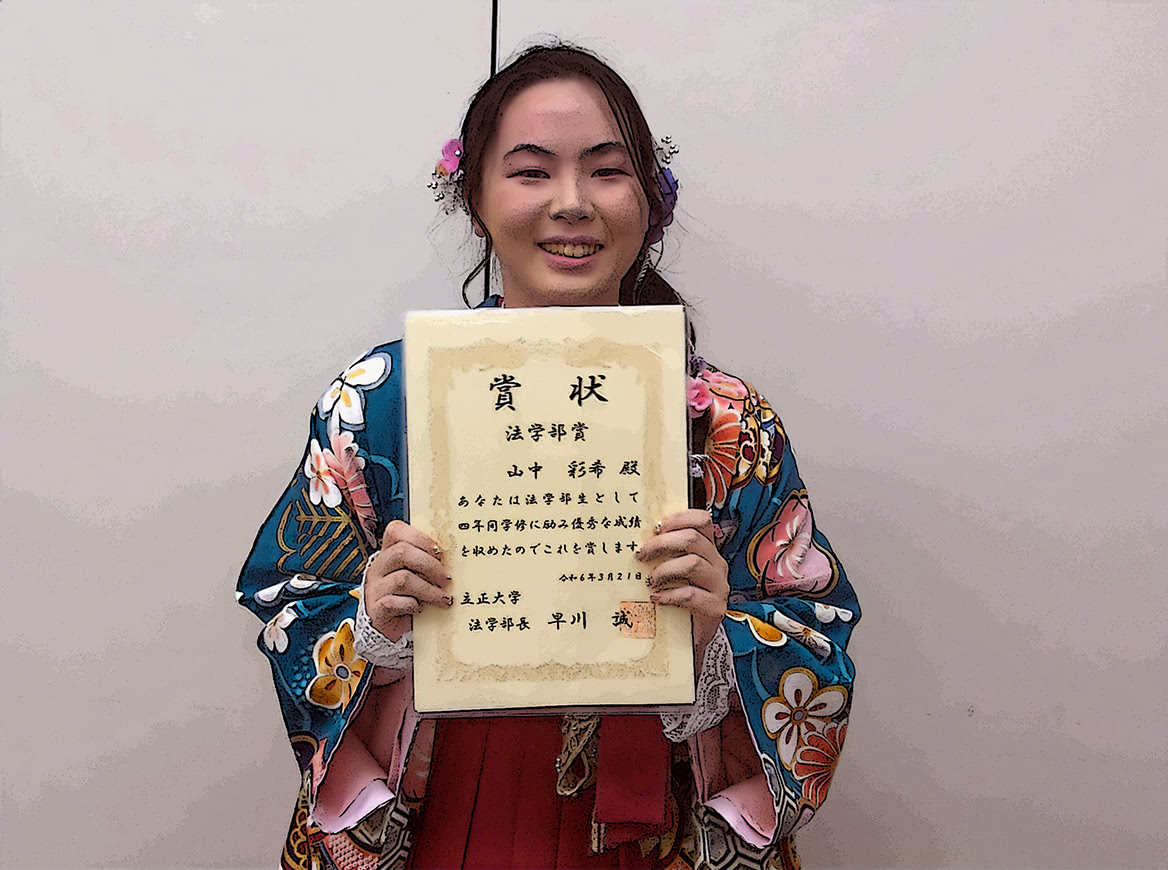 賞 状
法学部賞
山中 彩希 殿
あなたは法学部生として
四年間学修に励み優秀な成績
を収めたのでこれを賞します
令和6年3月21日
立正大学
法学部長 早川 誠